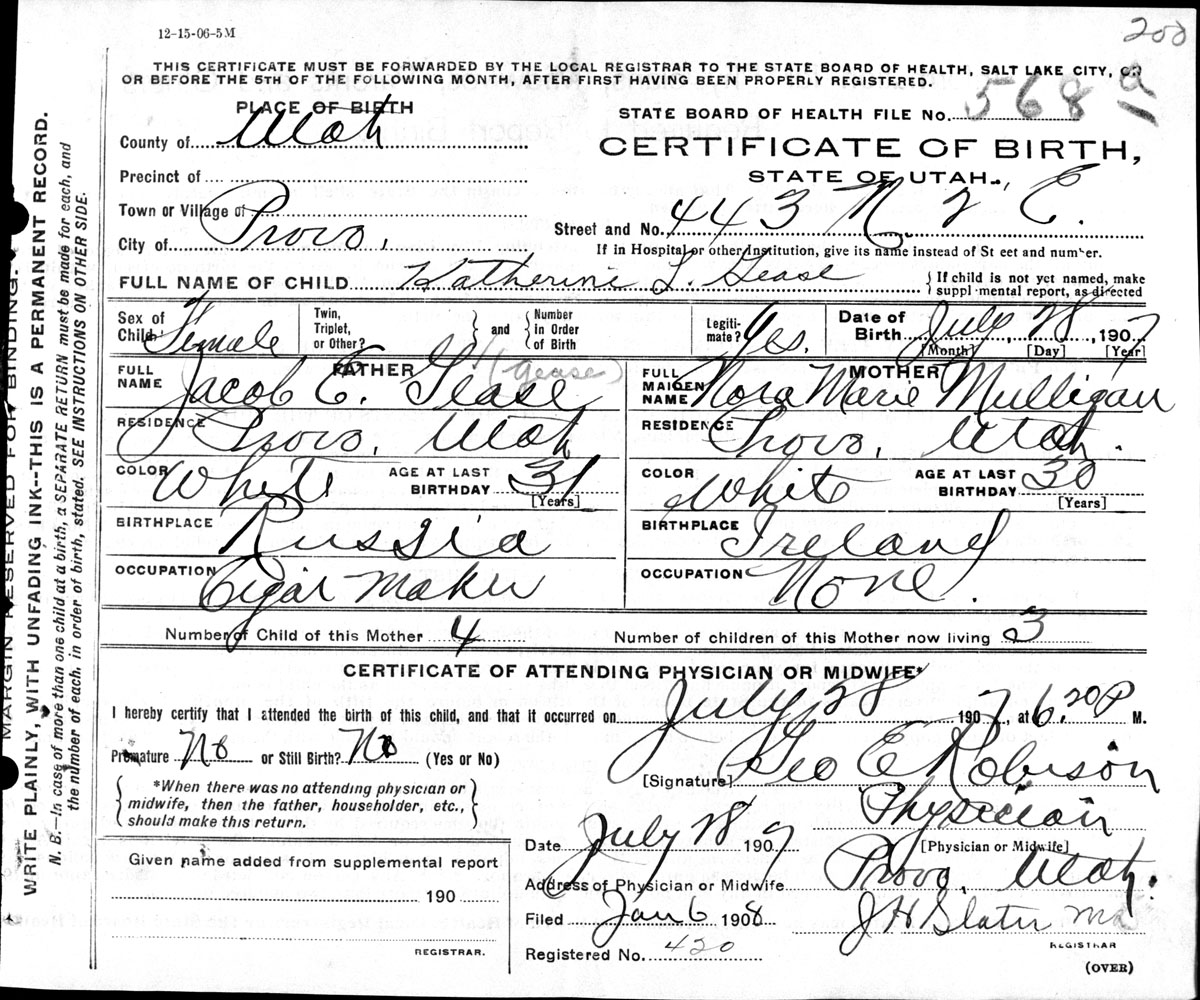 200
12-15-06-5M
THIS CERTIFICATE MUST BE FORWARDED BY THE LOCAL REGISTRAR TO THE STATE BOARD OF HEALTH, SALT LAKE CITY, ON
OR BEFORE THE 5TH OF THE FOLLOWING MONTH, AFTER FIRST HAVING BEEN PROPERLY REGISTERED.
PLACE OF BIRTH
STATE BOARD OF HEALTH FILE No. 568 a
County of Utah
CERTIFICATE OF BIRTH,
STATE OF UTAH.
Precinct of
Town or Village of
City of Provo,
Street and No. 443 N. 2 E.
If in Hospital or other Institution, give its name instead of St eet and number.
FULL NAME OF CHILD Katherine L. Gease
{If child is not yet named, make
suppl mental report, as directed
Sex of Child Female
Twin, Triplet, or Other? } and { Number in Order of Birth
Legitimate? Yes.
Date of Birth July, 28, 1907
[Month] [Day] [Year]
FATHER
FULL NAME Jacob E. Gease (Gease)
RESIDENCE Provo, Utah
COLOR White AGE AT LAST BIRTHDAY 31 [Years]
BIRTHPLACE Russia
OCCUPATION Cigar Maker
MOTHER
FULL MAIDEN NAME Nora Marie Mulligan
RESIDENCE Provo, Utah.
COLOR White AGE AT LAST BIRTHDAY 30 [Years]
BIRTHPLACE Ireland
OCCUPATION None.
Number of Child of this Mother 4 Number of children of this Mother now living 3
CERTIFICATE OF ATTENDING PHYSICIAN OR MIDWIFE*
I hereby certify that I attended the birth of this child, and that it occurred on July 28 1907, at 6.20P M.
Premature No or Still Birth? No (Yes or No)
[Signature] Geo E Robison
{ *When there was no attending physician or
midwife, then the father, householder, etc.,
should make this return. }
Physician
[Physician or Midwife]
Date July 28 1907
Address of Physician or Midwife Provo, Utah.
Given name added from supplemental report
190
REGISTRAR.
Filed Jan 6 1908 J H Slater Md
REGISTRAR
Registered No. 420
(OVER)
MARGIN RESERVED FOR BINDING.
WRITE PLAINLY, WITH UNFADING INK--THIS IS A PERMANENT RECORD.
N. B.—In case of more than one child at a birth, a SEPARATE RETURN must be made for each, and
the number of each, in order of birth, stated. SEE INSTRUCTIONS ON OTHER SIDE.